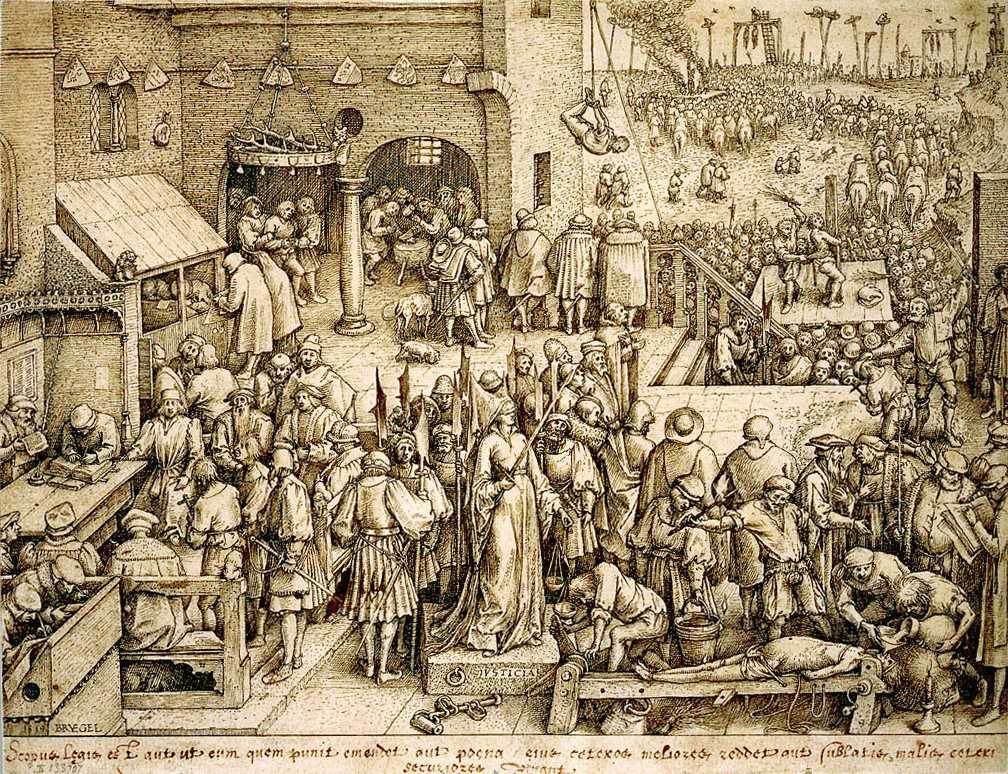 JVSTICIA
1559 BRVEGEL
Scopus Legis est aut ut eum quem punit emendet aut poena eius ceteros meliores reddet aut sublatis malis ceteri
securiores vivant